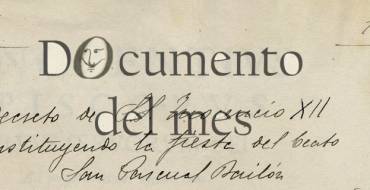 Documento
del mes
Decreto de S.S. Inocencio XII
instituyendo la fiesta del Beato
San Pascual Bailón